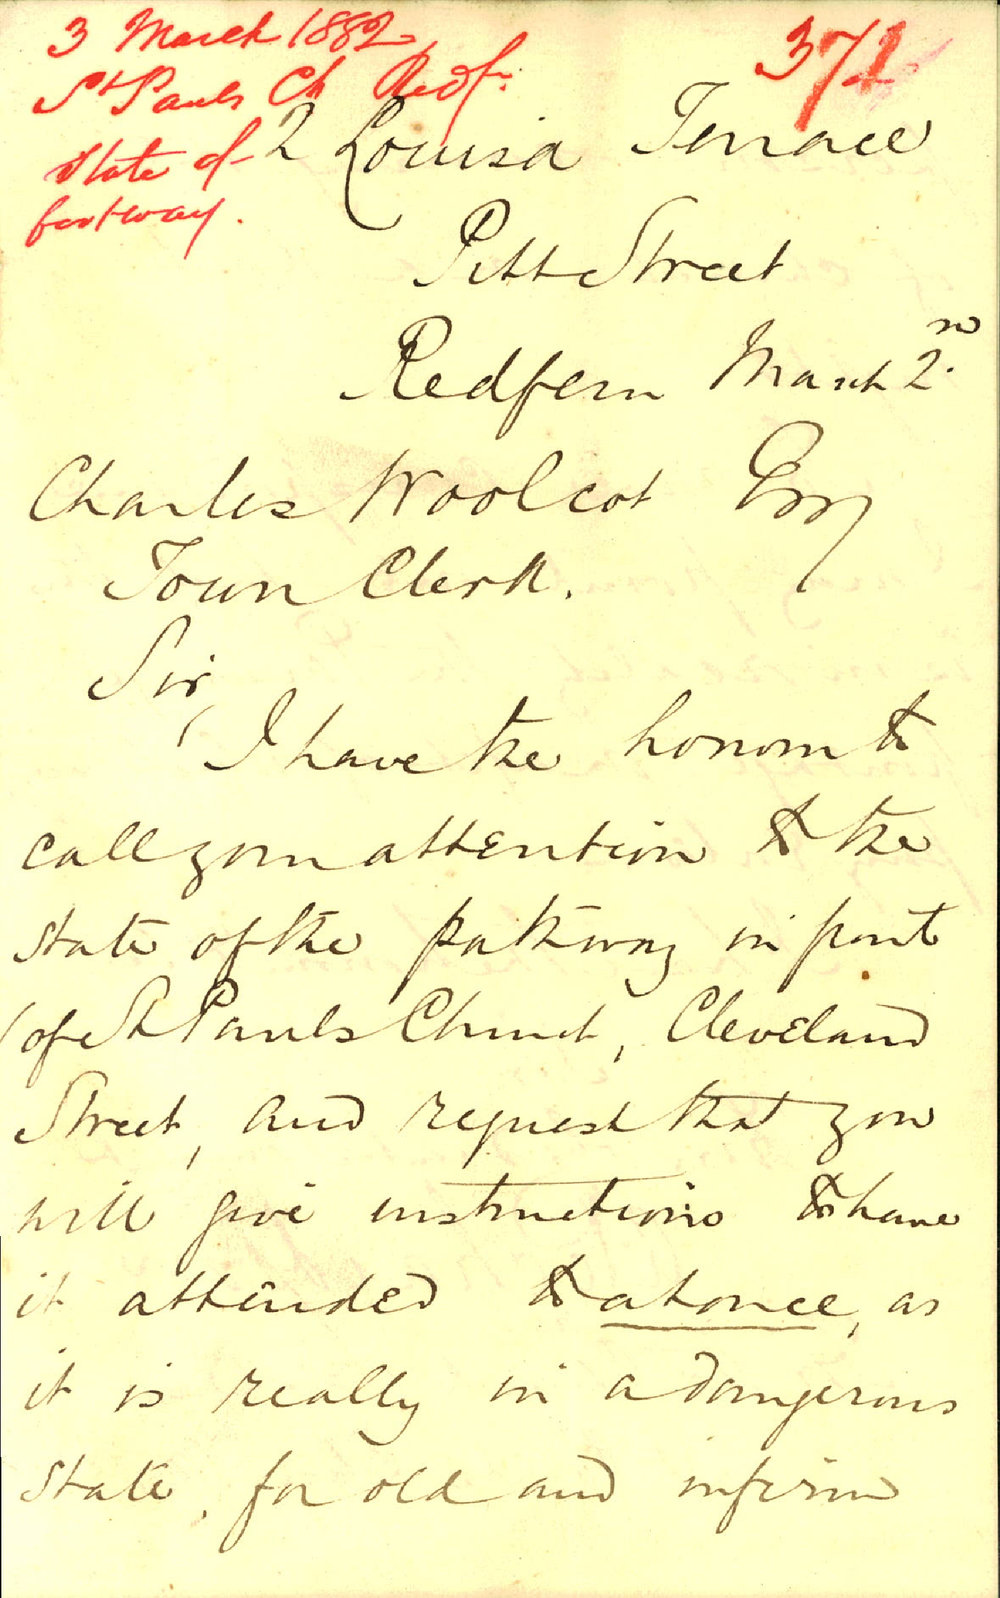 3 March 1882
St Pauls Ch Redfn.
State of
footway.
371
2 Louisa Terrace
Pitt Street
Redfern March 2nd.
Charles Woolcot Esq
Town Clerk.
Sir,
I have the honour to
call your attention to the
state of the pathway in front
of St Pauls Church, Cleveland
Street, and request that you
will give instructions to have
it attended to at once, as
it is really in a dangerous
state, for old and infirm